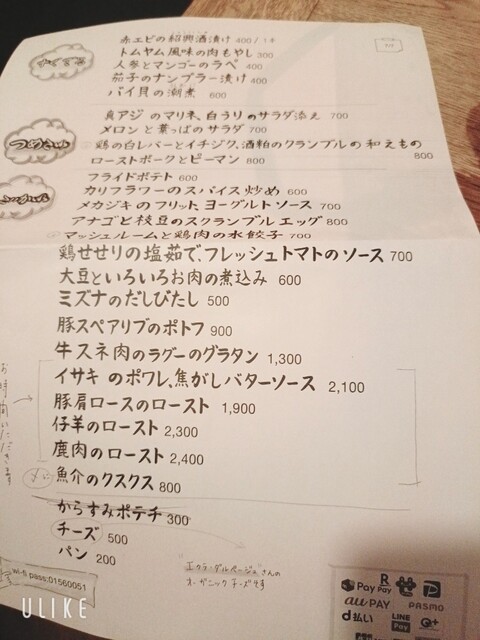 赤エビの紹興酒漬け 400/1本
トムヤム風味の肉もやし 300
人参とマンゴーのラペ 400
茄子のナンプラー漬け 400
バイ貝の潮煮 600
つめたい
真アジのマリネ、白うりのサラダ添え 700
メロンと葉っぱのサラダ 700
鶏の白レバーとイチジク、酒粕のクランブルの和えもの 800
ローストポークとピーマン 800
フライドポテト 600
カリフラワーのスパイス炒め 600
メカジキのフリット、ヨーグルトソース 700
アナゴと枝豆のスクランブルエッグ 800
マッシュルームと鶏肉の水餃子 700
鶏せせりの塩茹で、フレッシュトマトのソース 700
大豆といろいろお肉の煮込み 600
ミズナのだしびたし 500
豚スペアリブのポトフ 900
牛スネ肉のラグーのグラタン 1,300
お時間いただきます
イサキのポワレ、焦がしバターソース 2,100
豚肩ロースのロースト 1,900
仔羊のロースト 2,300
鹿肉のロースト 2,400
魚介のクスクス 800
からすみポテチ 300
チーズ 500
パン 200
さんの
オーガニックチーズです
wi-fi pass:01560051
PayPay
R Pay
au PAY
PASMO
d払い
LINE Pay
ULIKE